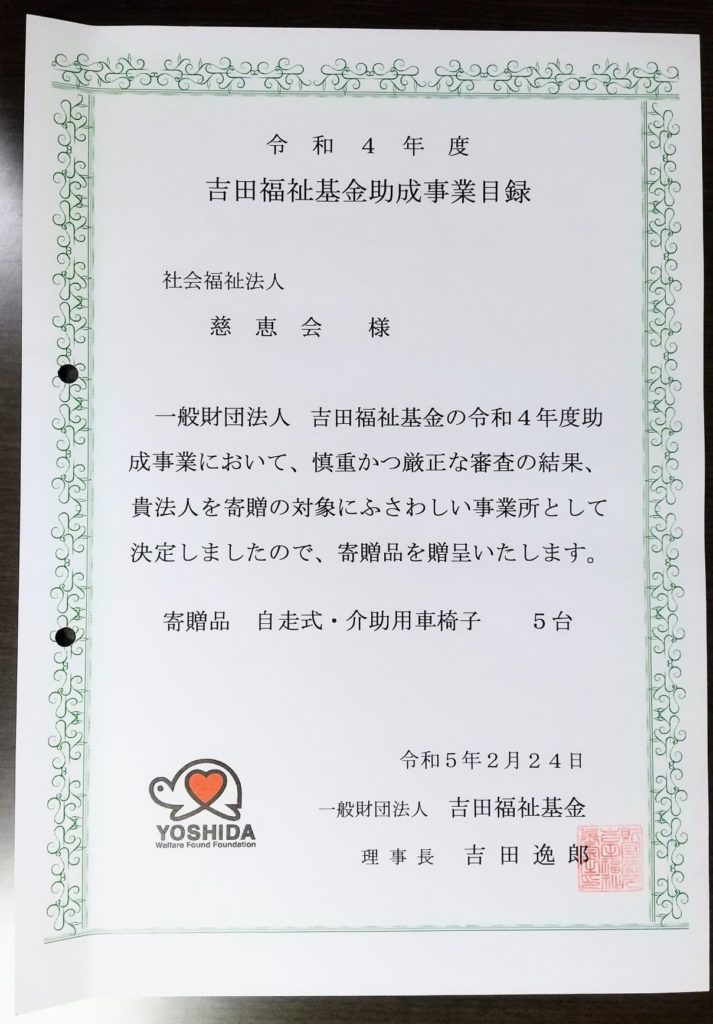 令和４年度
吉田福祉基金助成事業目録
社会福祉法人
慈恵会　様
一般財団法人　吉田福祉基金の令和４年度助
成事業において、慎重かつ厳正な審査の結果、
貴法人を寄贈の対象にふさわしい事業所として
決定しましたので、寄贈品を贈呈いたします。
寄贈品　自走式・介助用車椅子　　５台
令和５年２月２４日
一般財団法人　吉田福祉基金
理事長　吉田逸郎
YOSHIDA
Welfare Found Foundation